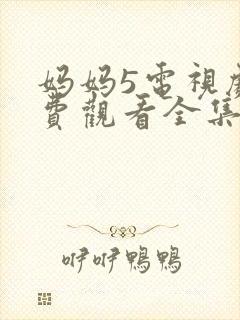 妈妈5電視
費觀看全集
咿咿鴨鴨